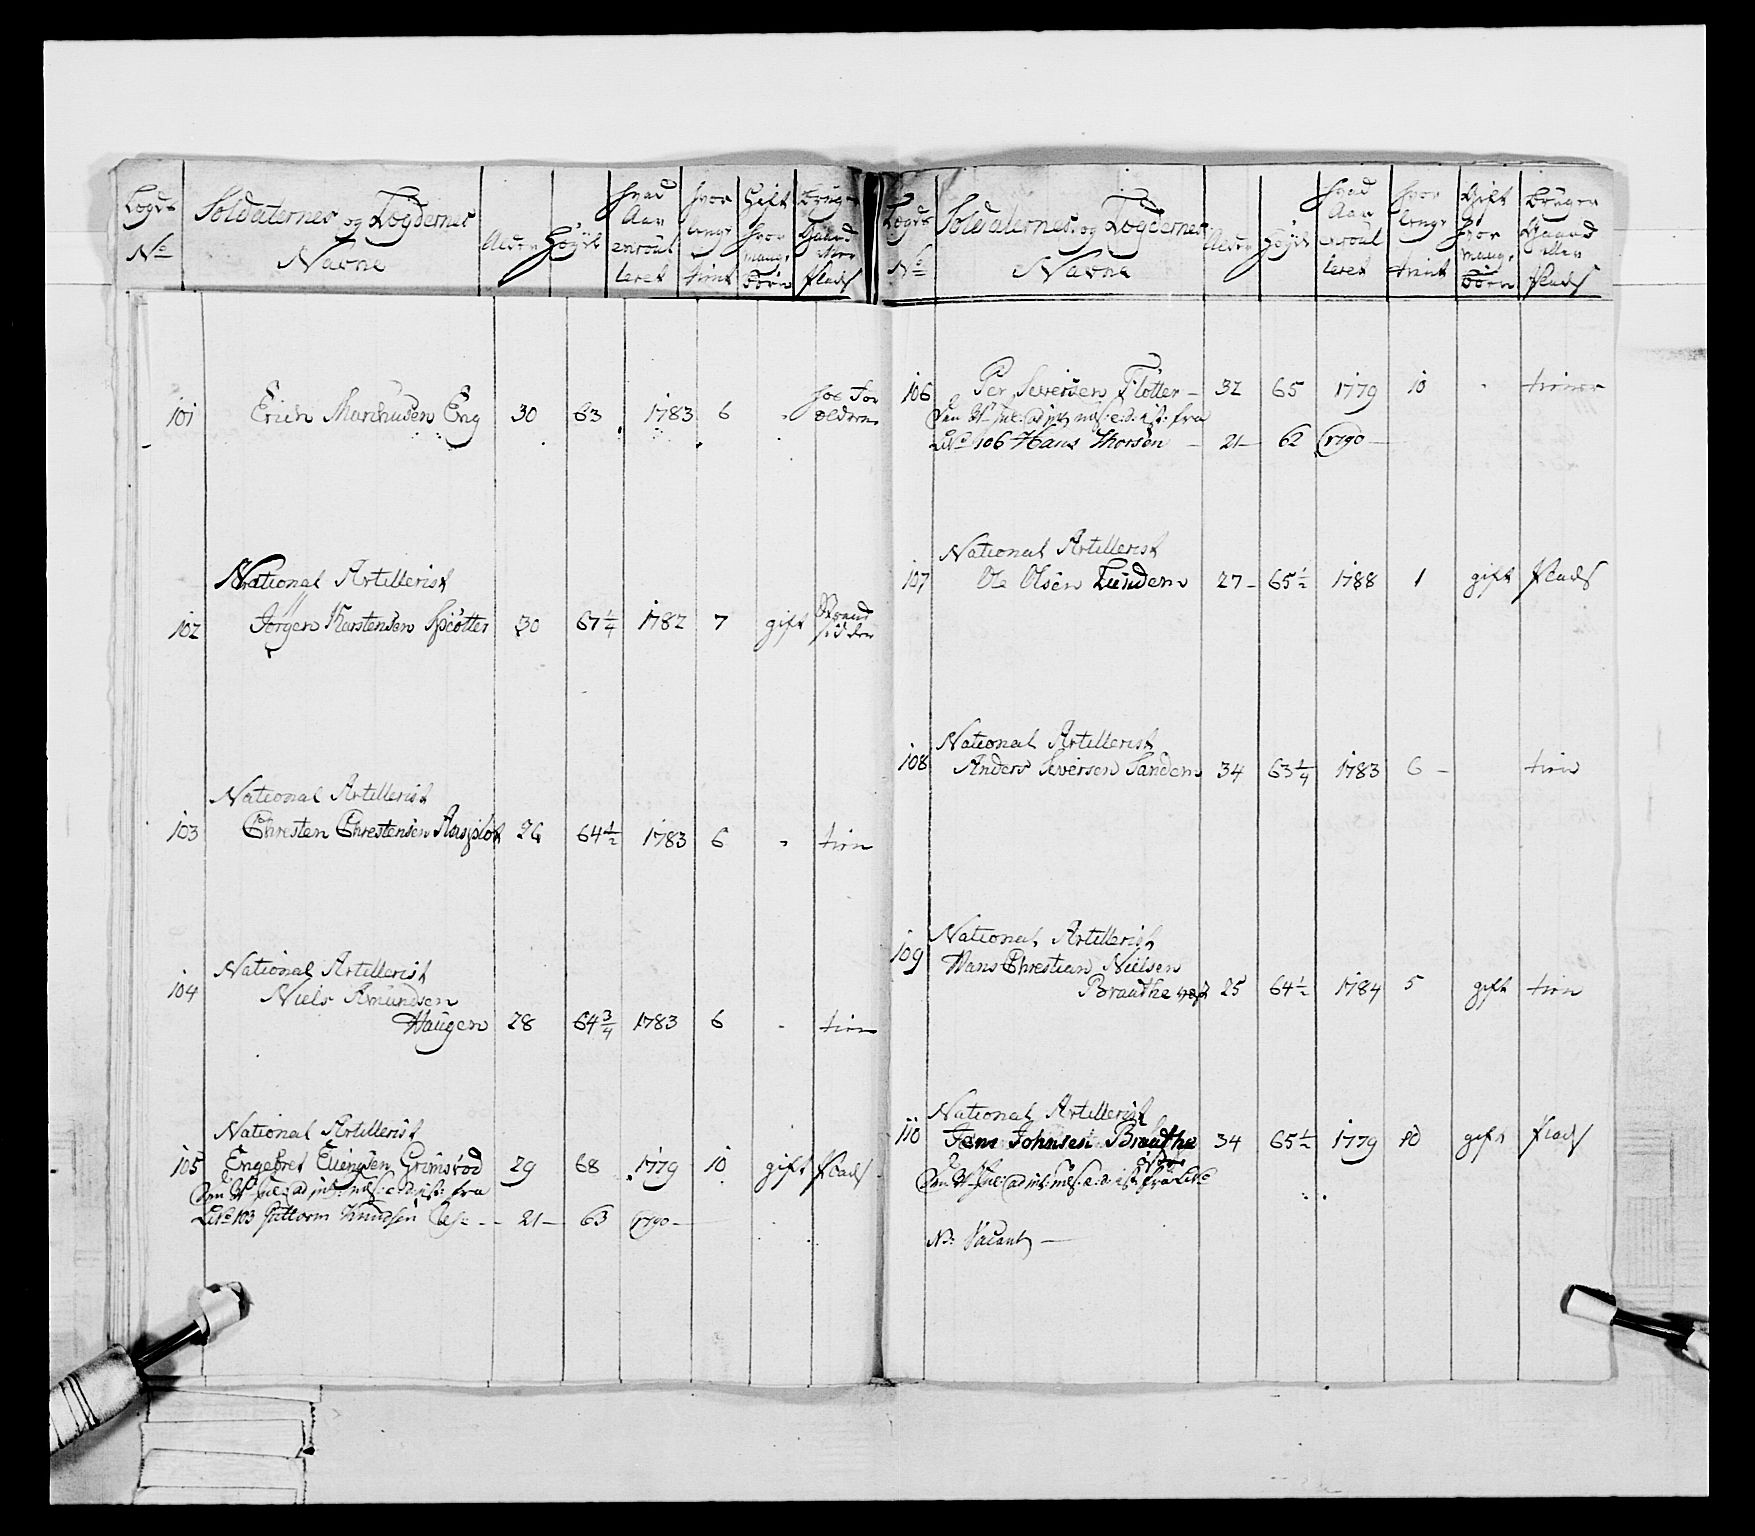 Lægds No Soldaternes og Lægdernes Navne Alder Høyde hvad Aar enroulleret hvor lenge tient Gift hvor mange Børn Bruger Gaard eller Plads
101 Erich Marchusen Eng 30 63 1783 6 " hos For
ældrene
National Artillerist
102 Jørgen Karstensen 30 67 1/4 1782 7 gift Strand
sidder
National Artillerist
103 Christen Christensen 26 64 1/2 1783 6 " tien
National Artillerist
104 Niels Amundsen
Haugen 28 64 3/4 1783 6 " tien
National Artillerist
105 Engebret Evensen Grimsrod 29 68 1779 10 gift Plads
fra
No 103 Guttorm Knudsen 21 63 1790
Lægds No Soldaternes og Lægdernes Navne Alder Høyde hvad Aar enroulleret hvor lenge tient Gift hvor mange Børn Bruger Gaard eller Plads
106 Per Seversen Flotter 32 65 1779 10 " tiener
fra
No 106 Hans Thorsen 21 62 1790
National Artillerist
107 Ole Olsen Lunden 27 65 1/2 1788 1 gift Plads
National Artillerist
108 Anders Seversen Sanden 34 63 1/4 1783 6 tien
National Artillerist
109 Hans Chrestian Nielsen
Brauthe 25 64 1/2 1784 5 gift tien
National Artillerist
110 Johnsen Brauthe 34 65 1/2 1779 10 gift Plads
fra
No Vacant